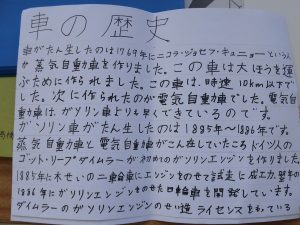 車の歴史
車がたん生したのは1769年にニコラ・ジョセフ・キュニョーという人
が蒸気自動車を作りました。この車は大ほうを運
ぶために作られました。この車は、時速10km以下で
した。次に作られたのが電気自動車でした。電気自
動車は、ガソリン車よりも早くできているのです。
ガソリン車がたん生したのは1885年〜1886年です。
蒸気自動車と電気自動車がこん在していたころドイツ人の
ゴットリープダイムラーが初めてのガソリンエンジンを作りました。
1885年に木せいの二輪車にエンジンをのせて試走し成工力、翌年の
1886年にガソリンエンジンをのせた四輪車を開発しています。
ダイムラーのガソリンエンジンのせい造ライセンスをもっている